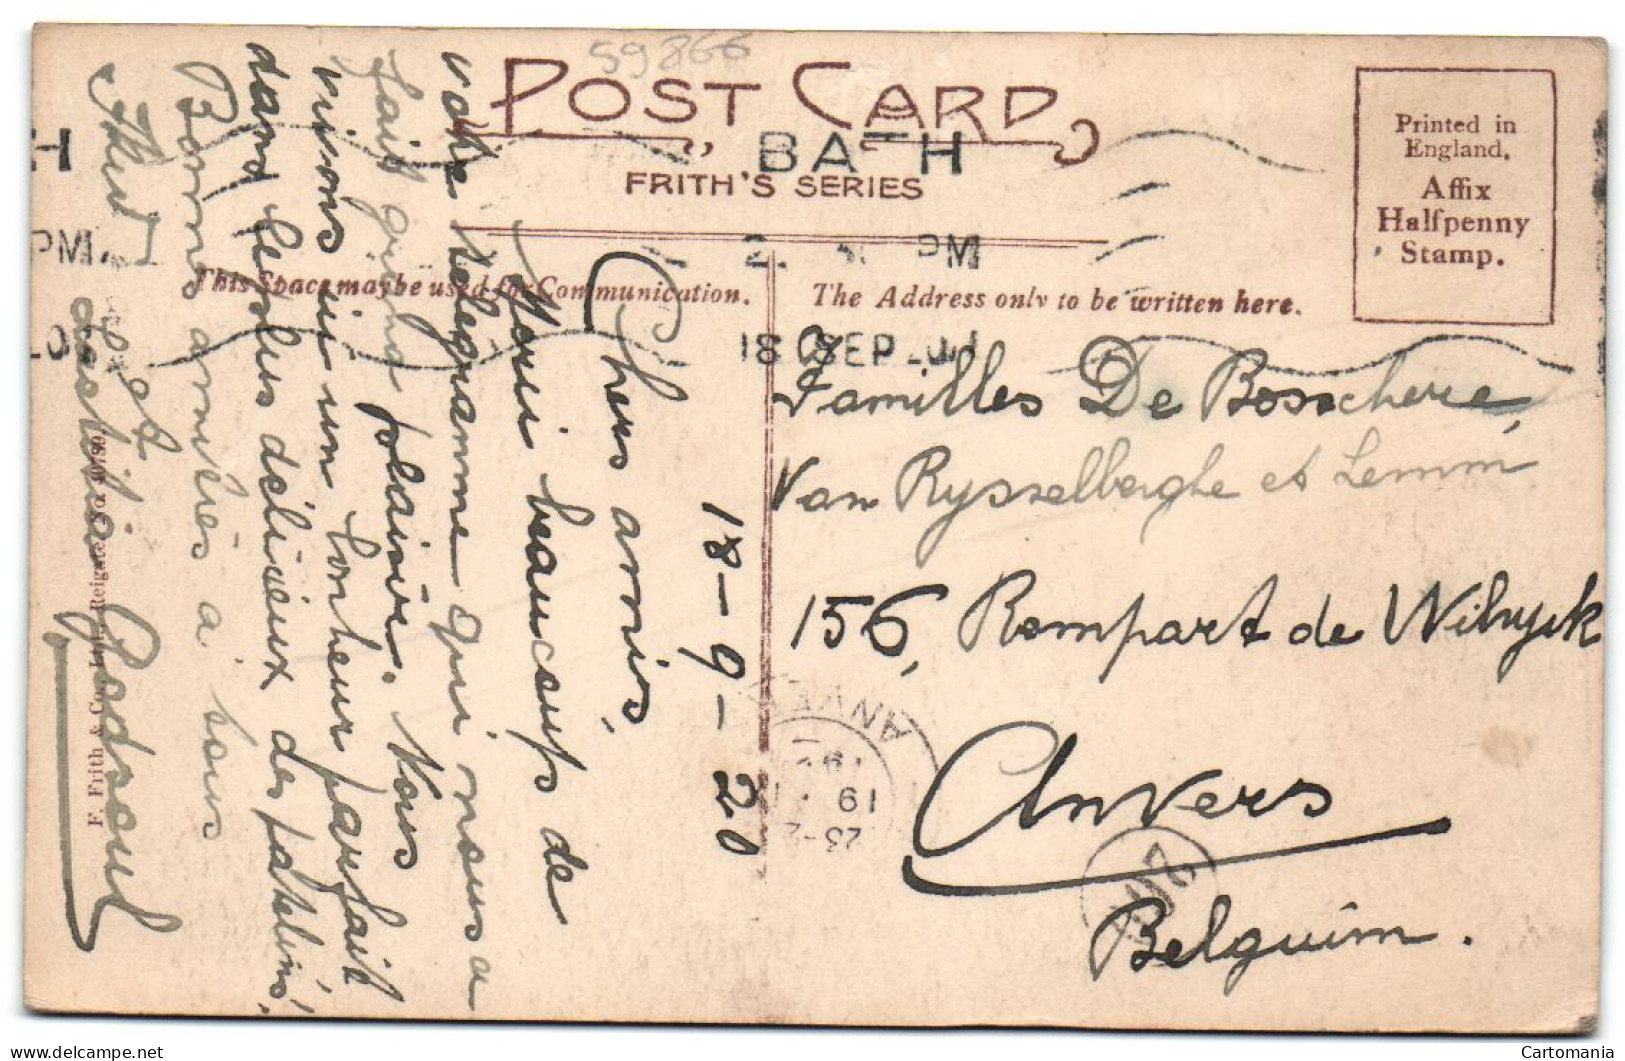 59866
POST CARD
BATH
FRITH'S SERIES
Printed in
England.
Affix
Halfpenny
Stamp.
H
PM
2. 30 PM
This Space may be used for Communication.
The Address only to be written here.
18 SEP
18-9-20
Chers amis,
Merci beaucoup de
votre télégramme qui nous a
fait grand plaisir. Nous
vivons ici un bonheur parfait
dans le plus délicieux des patelins!
Bonnes amitiés à tous
et
Gedseul
Familles De Bosschere,
Van Rysselberghe et Lemm
156, Rempart de Wilryck
Anvers
Belguim.
ANVE
19
23-
F. Frith & Co., Ltd., Reigate. No.
Cartomania